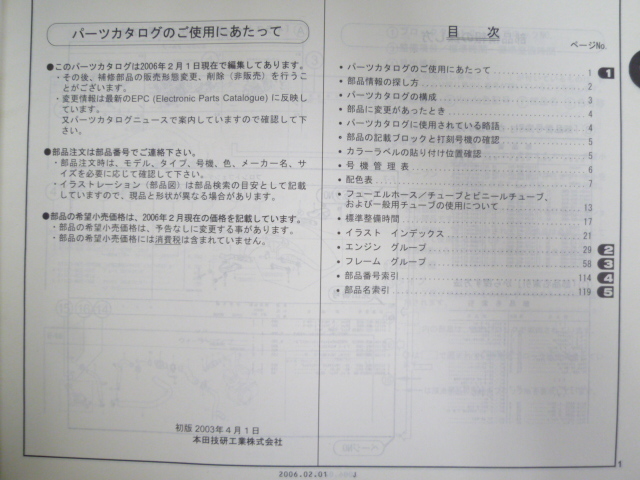 パーツカタログのご使用にあたって
●このパーツカタログは2006年2月1日現在で編集してあります。
・その後、補修部品の販売形態変更、削除（非販売）を行うこ
とがございます。
・変更情報は最新のEPC (Electronic Parts Catalogue) に反映し
ています。
又パーツカタログニュースで案内していますので確認して下
さい。
●部品注文は部品番号でご連絡下さい。
・部品注文時は、モデル、タイプ、号機、色、メーカー名、サ
イズを必要に応じて確認して下さい。
・イラストレーション（部品図）は部品検索の目安として記載
していますので、現品と形状が異なる場合があります。
●部品の希望小売価格は、2006年2月現在の価格を記載しています。
・部品の希望小売価格は、予告なしに変更する事があります。
・部品の希望小売価格には消費税は含まれていません。
初版 2003年4月1日
本田技研工業株式会社
目 次
ページNo.
• パーツカタログのご使用にあたって 1 1
• 部品情報の探し方 2
• パーツカタログの構成 3
• 部品に変更があったとき 4
• パーツカタログに使用されている略語 4
• 部品の記載ブロックと打刻号機の確認 5
• カラーラベルの貼り付け位置確認 5
• 号 機 管 理 表 6
• 配色表 7
• フューエルホース／チューブとビニールチューブ、
および一般用チューブの使用について 13
• 標準整備時間 17
• イラスト インデックス 21
• エンジン グループ 29 2
• フレーム グループ 58 3
• 部品番号索引 114 4
• 部品名索引 119 5
1
2006.02.01 J